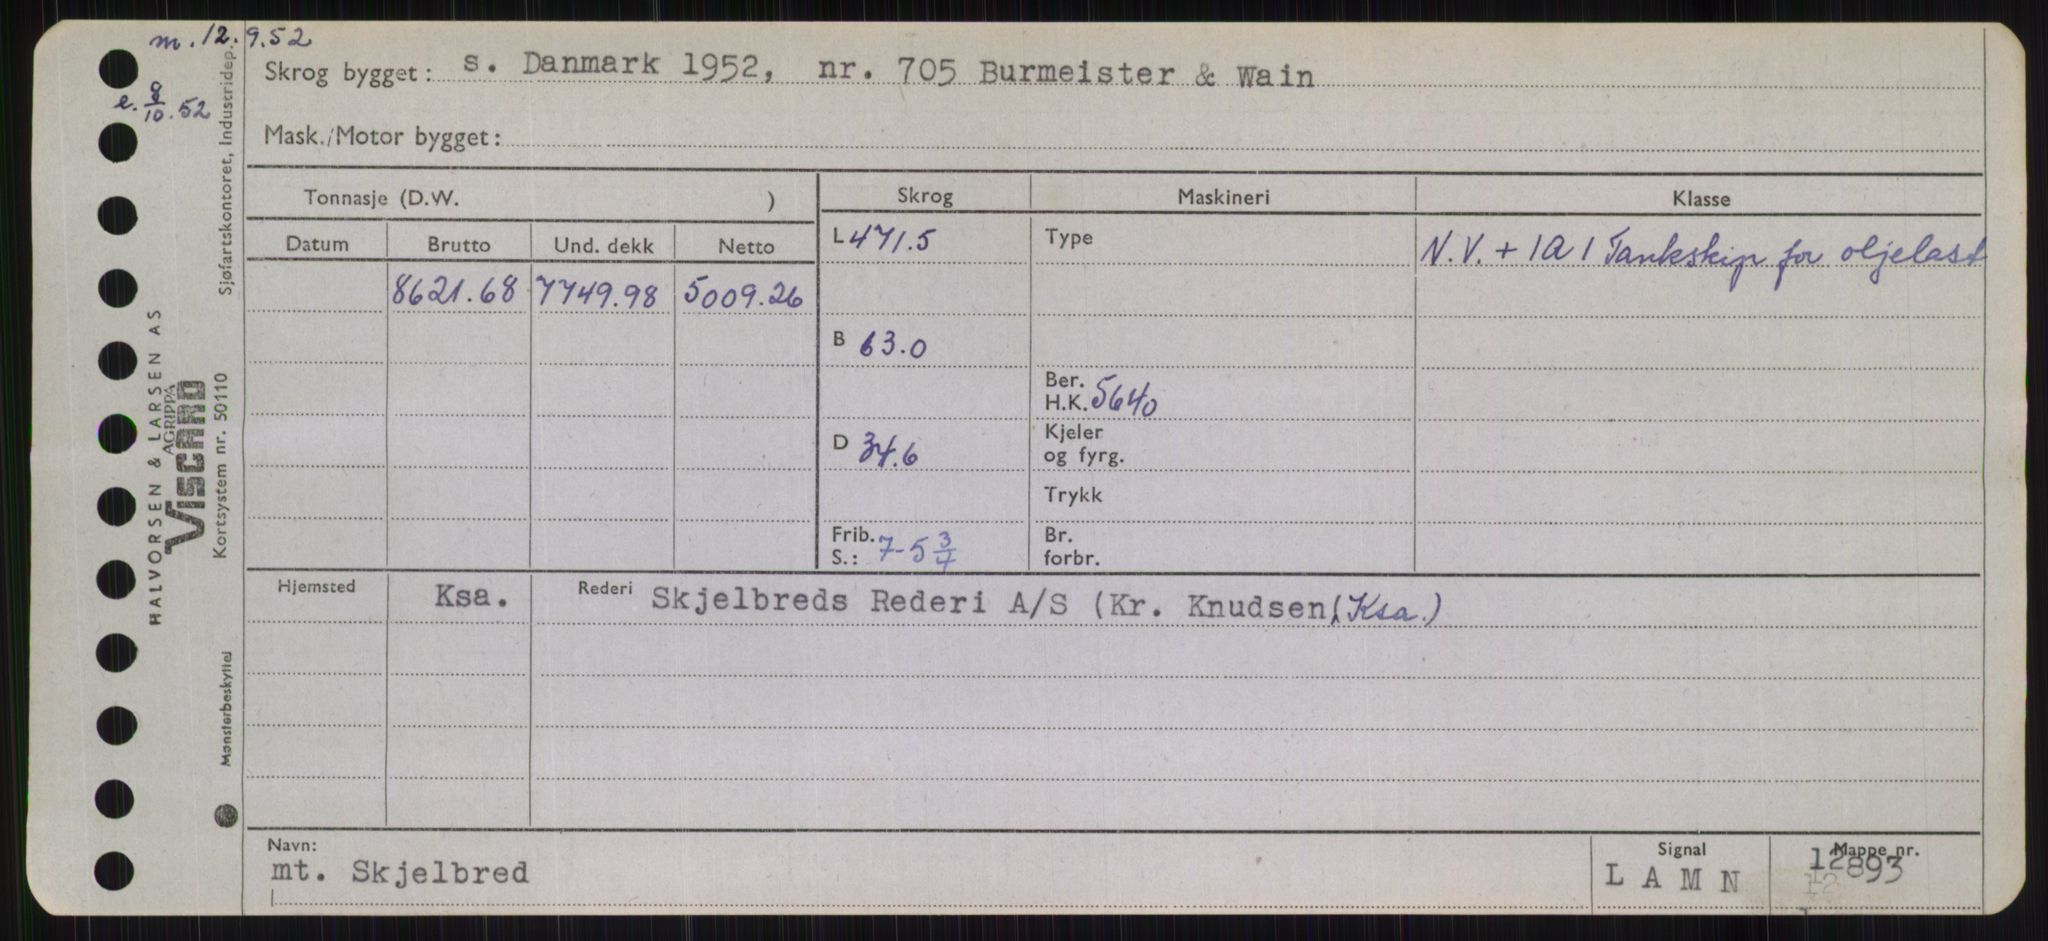 m. 12.9.52
e. 8/10.52
Skrog bygget: s. Danmark 1952, nr. 705 Burmeister & Wain
Mask./Motor bygget:
Tonnasje (D.W. )
Skrog
Maskineri
Klasse
Datum
Brutto
Und. dekk
Netto
L 471.5
Type
N.V. + 1A1 Tankskip for oljelast
8621.68
7749.98
5009.26
B 63.0
Ber.
H.K. 5640
D 34.6
Kjeler
og fyrg.
Trykk
Frib.
S.: 7-5 3/4
Br.
forbr.
Hjemsted
Ksa.
Rederi
Skjelbreds Rederi A/S (Kr. Knudsen, Ksa.)
Navn:
mt. Skjelbred
Signal
LAMN
Mappe nr.
12893
HALVORSEN & LARSEN AS
AGRIPPA
VISCARD
Kortsystem nr. 50110
Sjøfartskontoret, Industridep.
Mønsterbeskyttet